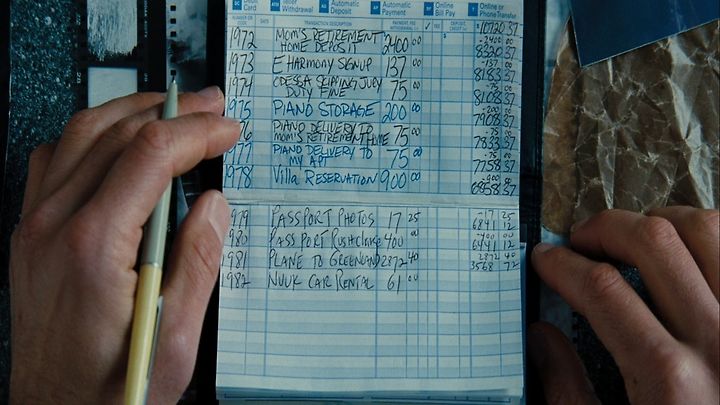 DC Debit Card
ATM Teller Withdrawal
AD Automatic Deposit
AP Automatic Payment
BP Online Bill Pay
T Online or Phone Transfer
NUMBER OR CODE DATE TRANSACTION DESCRIPTION PAYMENT, FEE WITHDRAWAL (-) ✓ FEE DEPOSIT, CREDIT (+) $ 10720 37
1972 MOM'S RETIREMENT HOME DEPOSIT 2400 00 -2400 00
8320 37
1973 EHARMONY SIGNUP 137 00 -137 00
8183 37
1974 ODESSA SKIPING JURY DUTY FINE 75 00 -75 00
8108 37
1975 PIANO STORAGE 200 00 -200 00
7908 37
76 PIANO DELIVERY TO MOM'S RETIREMENT HOME 75 00 -75 00
7833 37
1977 PIANO DELIVERY TO MY APT 75 00 -75 00
7758 37
1978 Villa RESERVATION 900 00 -900 00
6858 37
1979 PASSPORT PHOTOS 17 25 -17 25
6841 12
1980 PASSPORT RUSH 400 00 -400 00
6441 12
1981 PLANE TO GREENLAND 2872 40 2872 40
3568 72
1982 NUUK CAR RENTAL 61 00